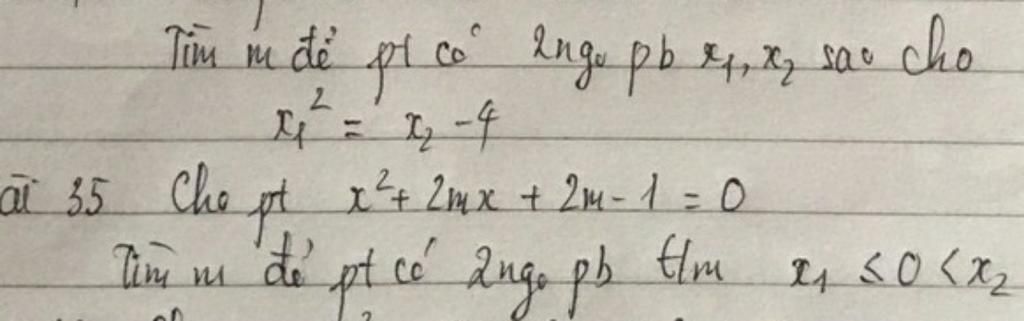 Tìm m để pt có 2 ngo pb x₁, x₂ sao cho
x₁² = x₂ - 4
ài 35 Cho pt x² + 2mx + 2m - 1 = 0
Tìm m để pt có 2 ngo pb t/m x₁ ≤ 0 < x₂